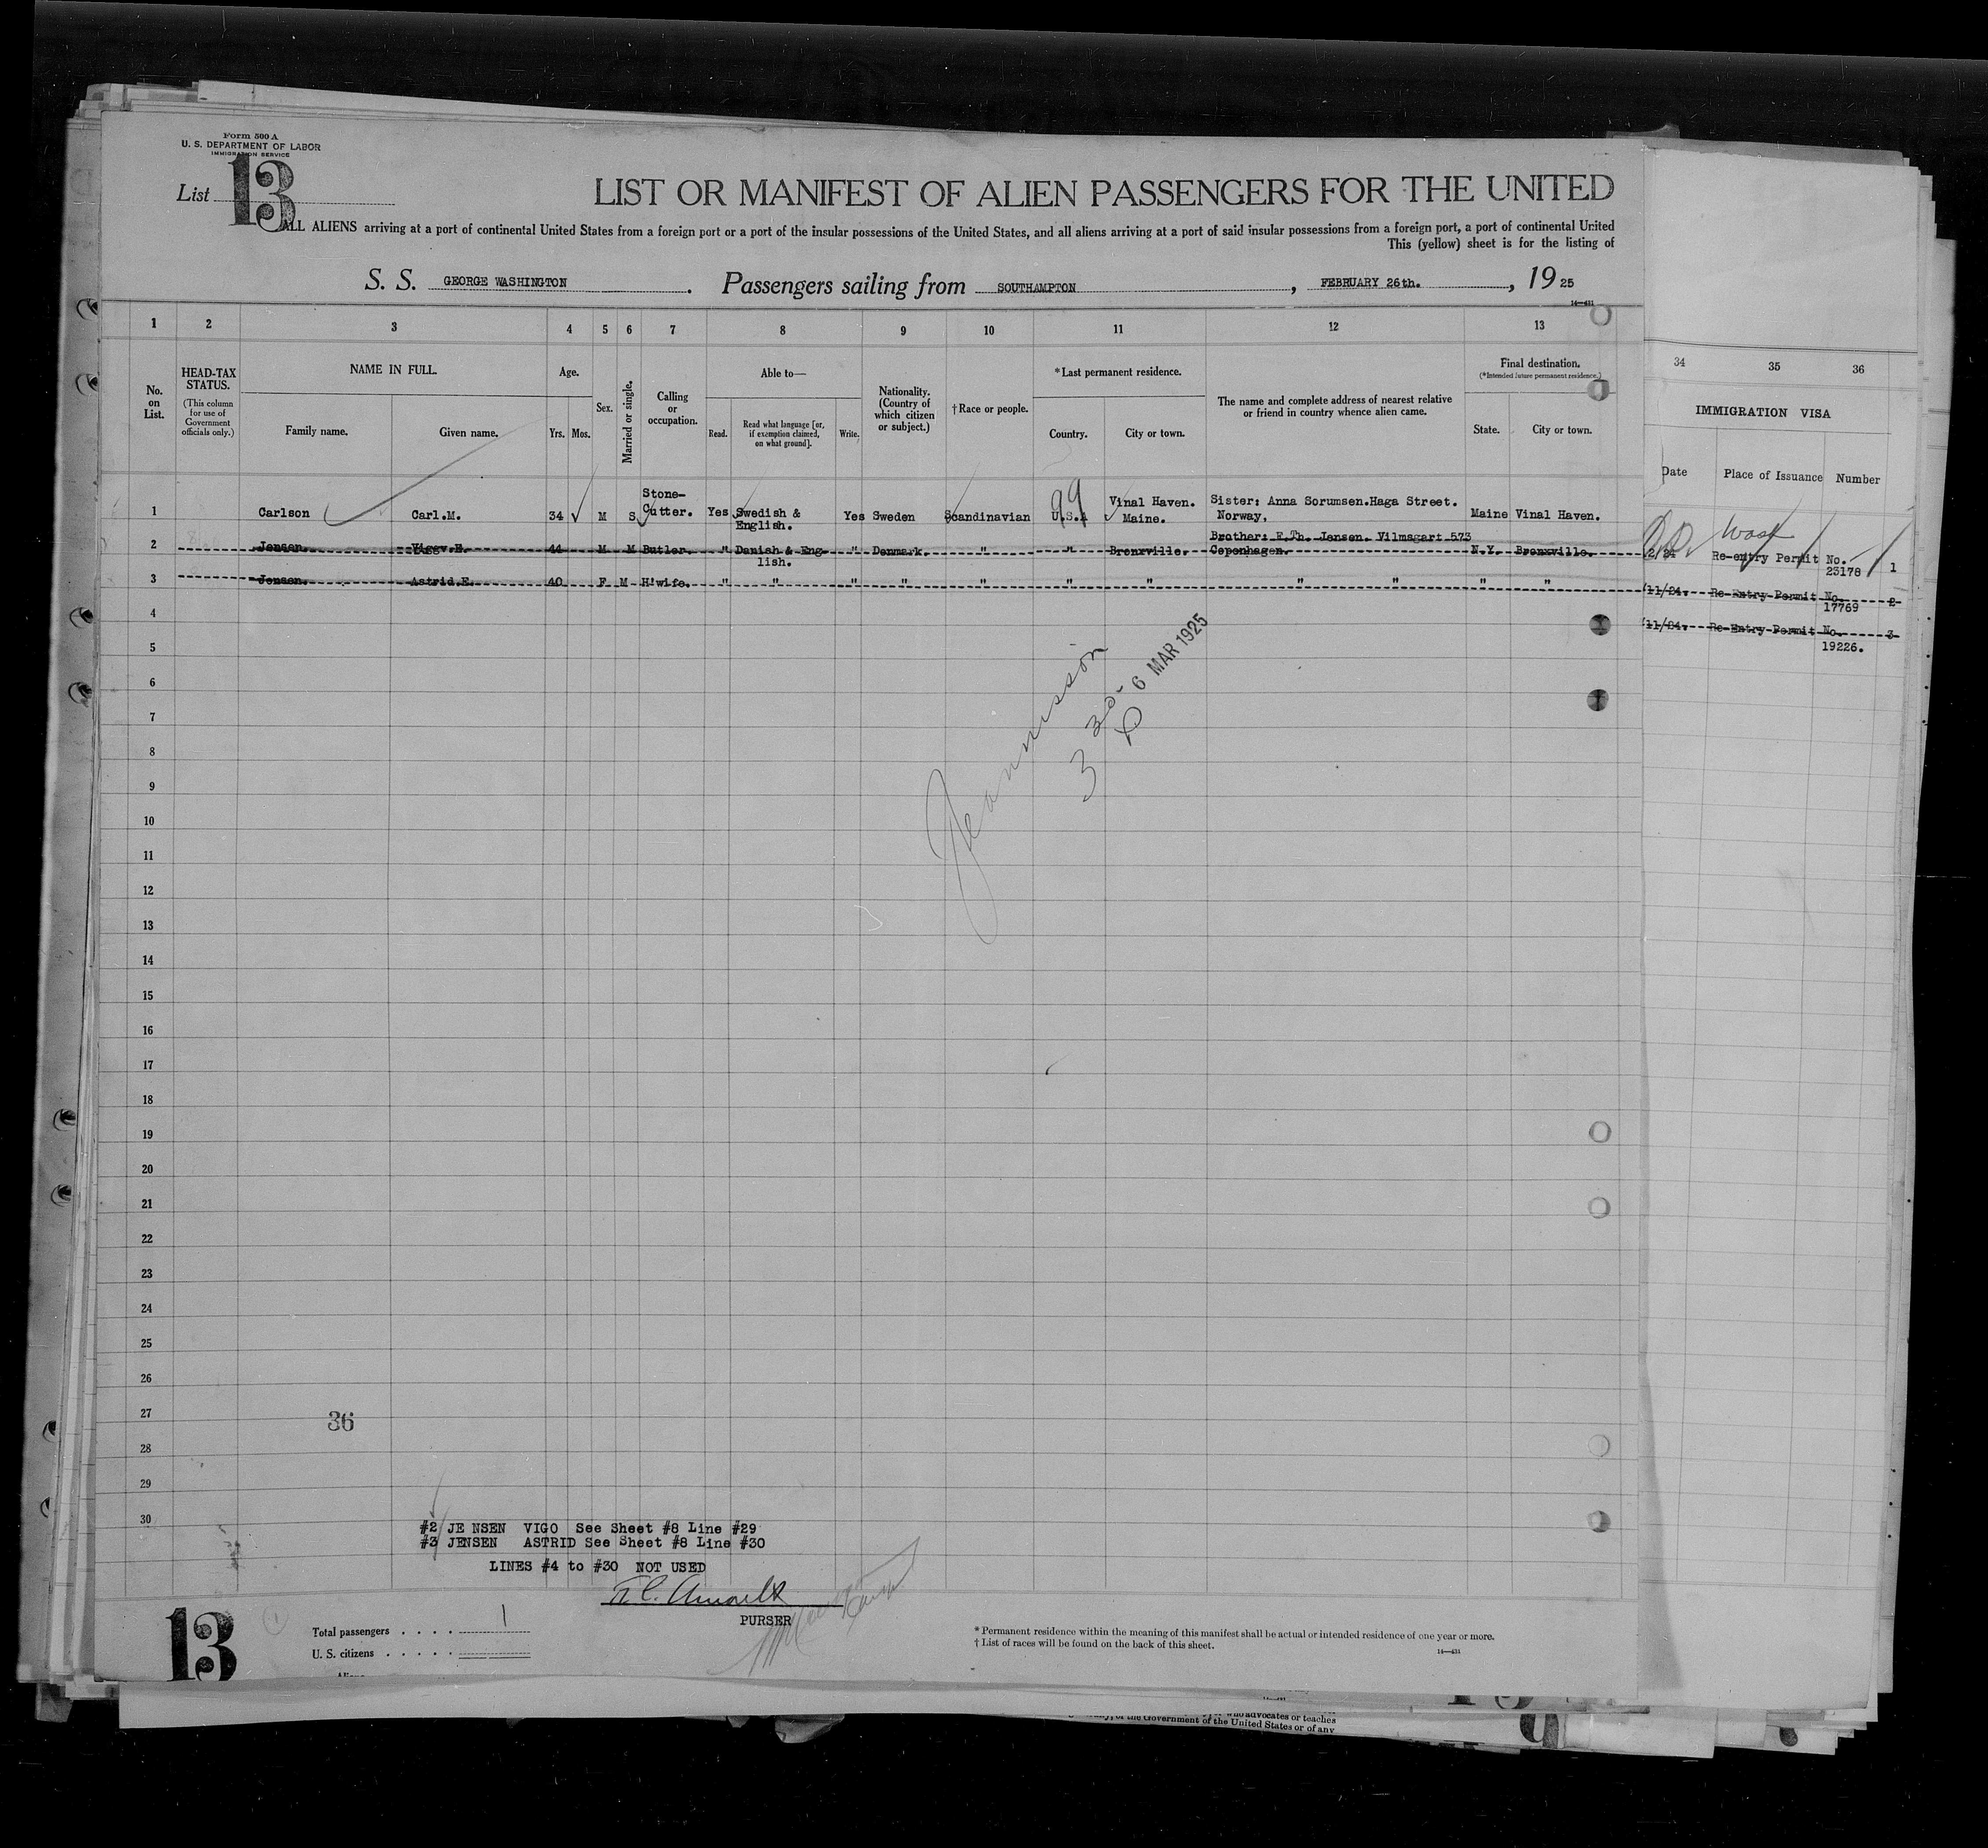 Form 500 A
U. S. DEPARTMENT OF LABOR
IMMIGRATION SERVICE
List 13
LIST OR MANIFEST OF ALIEN PASSENGERS FOR THE UNITED
ALL ALIENS arriving at a port of continental United States from a foreign port or a port of the insular possessions of the United States, and all aliens arriving at a port of said insular possessions from a foreign port, a port of continental United
This (yellow) sheet is for the listing of
S. S. GEORGE WASHINGTON . Passengers sailing from SOUTHAMPTON , FEBRUARY 26th. , 19 25
14—431
1 2 3 4 5 6 7 8 9 10 11 12 13
34 35 36
No. on List.
HEAD-TAX STATUS.
(This column for use of Government officials only.)
NAME IN FULL.
Family name.
Given name.
Age.
Yrs. Mos.
Sex.
Married or single.
Calling or occupation.
Able to—
Read.
Read what language [or, if exemption claimed, on what ground].
Write.
Nationality. (Country of which citizen or subject.)
†Race or people.
*Last permanent residence.
Country.
City or town.
The name and complete address of nearest relative or friend in country whence alien came.
Final destination.
(*Intended future permanent residence.)
State.
City or town.
IMMIGRATION VISA
Date
Place of Issuance
Number
1 Carlson Carl.M. 34 M S Stone-Cutter. Yes Swedish & English. Yes Sweden Scandinavian U.S.A Vinal Haven. Maine. Sister: Anna Sorumsen.Haga Street. Norway, Maine Vinal Haven.
99
Wash
2/24 Re-entry Permit No. 23178 1
2 Jensen. Viggv.H. 44 M M Butler. " Danish & Eng-lish. " Denmark. " " Bronxville. Brother: E.Th. Jensen. Vilmsgart 573 Copenhagen. N.Y. Bronxville.
/11/24. Re-Entry-Permit No. 17769 2
3 Jensen. Astrid.E. 40 F M H'wife. " " " " " " " " " " "
/11/24. Re-Entry-Permit No. 19226. 3
4
5
6
7
8
9
10
11
12
13
14
15
16
17
18
19
20
21
22
23
24
25
26
27
28
29
30
6 MAR 1925
3 30
36
#2 JE NSEN VIGO See Sheet #8 Line #29
#3 JENSEN ASTRID See Sheet #8 Line #30
LINES #4 to #30 NOT USED
PURSER
13
Total passengers . . . . 1
U. S. citizens . . . . .
* Permanent residence within the meaning of this manifest shall be actual or intended residence of one year or more.
† List of races will be found on the back of this sheet.
14—431
who advocates or teaches
the Government of the United States or of any